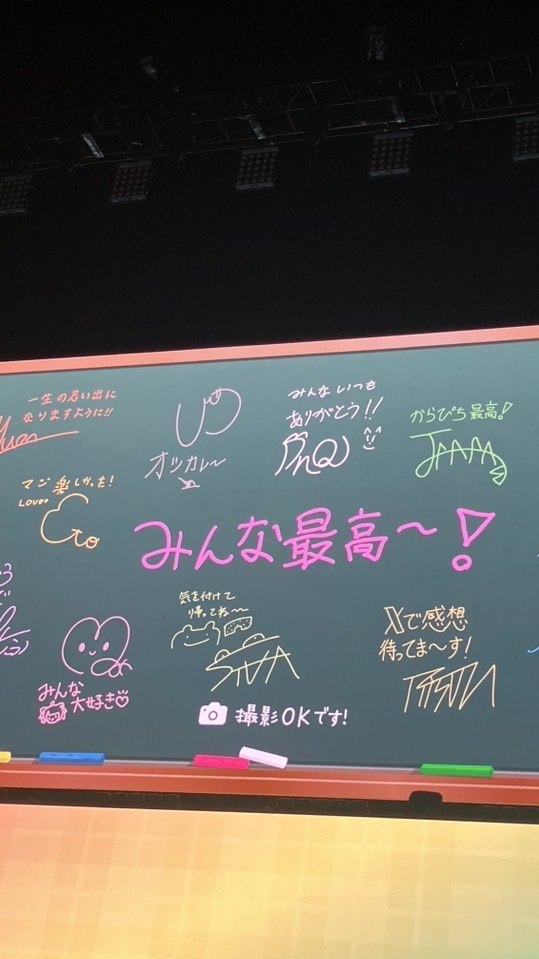 一生の思い出に
なりますように!!
オッカレ〜
みんないつも
ありがとう!!
からぴち最高!
マジ楽しかった!
LOVE
みんな最高〜!
気を付けて
帰ってね〜
みんな
大好き♡
Xで感想
待ってま〜す!
撮影OKです!